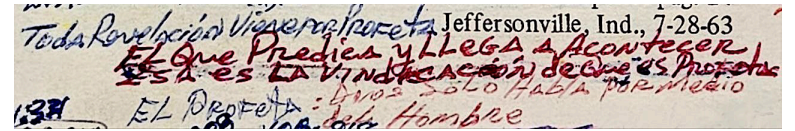 Toda Revelación Viene por Profeta Jeffersonville, Ind., 7-28-63
EL QUE PREDICA Y LLEGA A ACONTECER
ESA ES LA VINDICACIÓN de que es Profeta
EL PROFETA: Dios Sólo Habla por medio
del Hombre